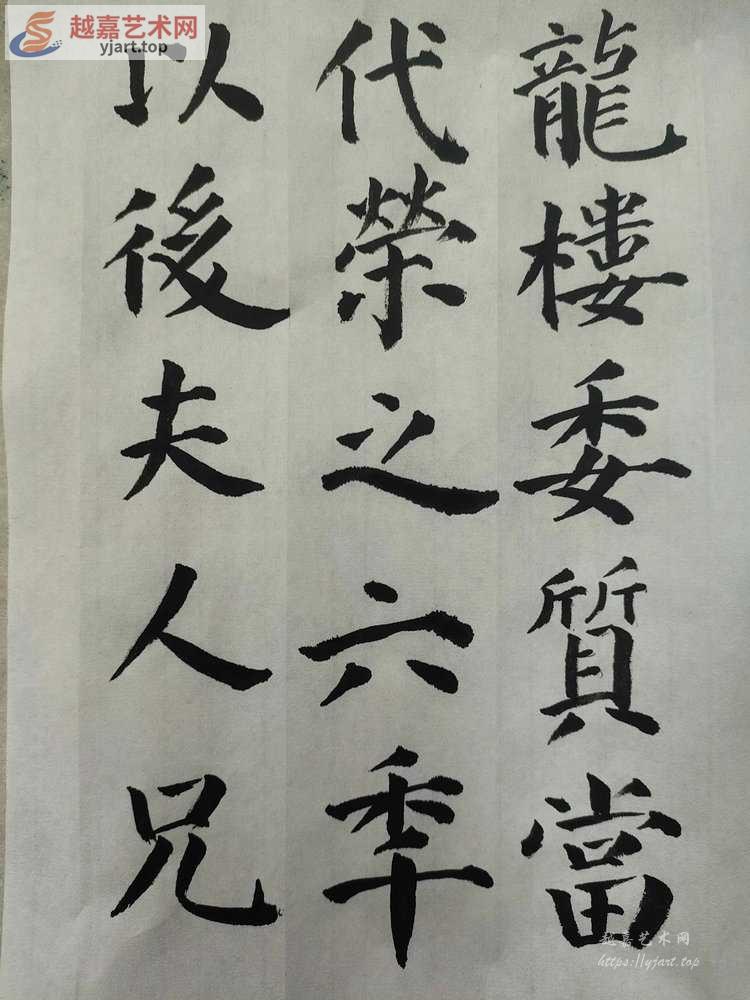 越嘉艺术网
yjart.top
龍樓委質當
代榮之六秊
以後夫人兄
越嘉艺术网
https://yjart.top